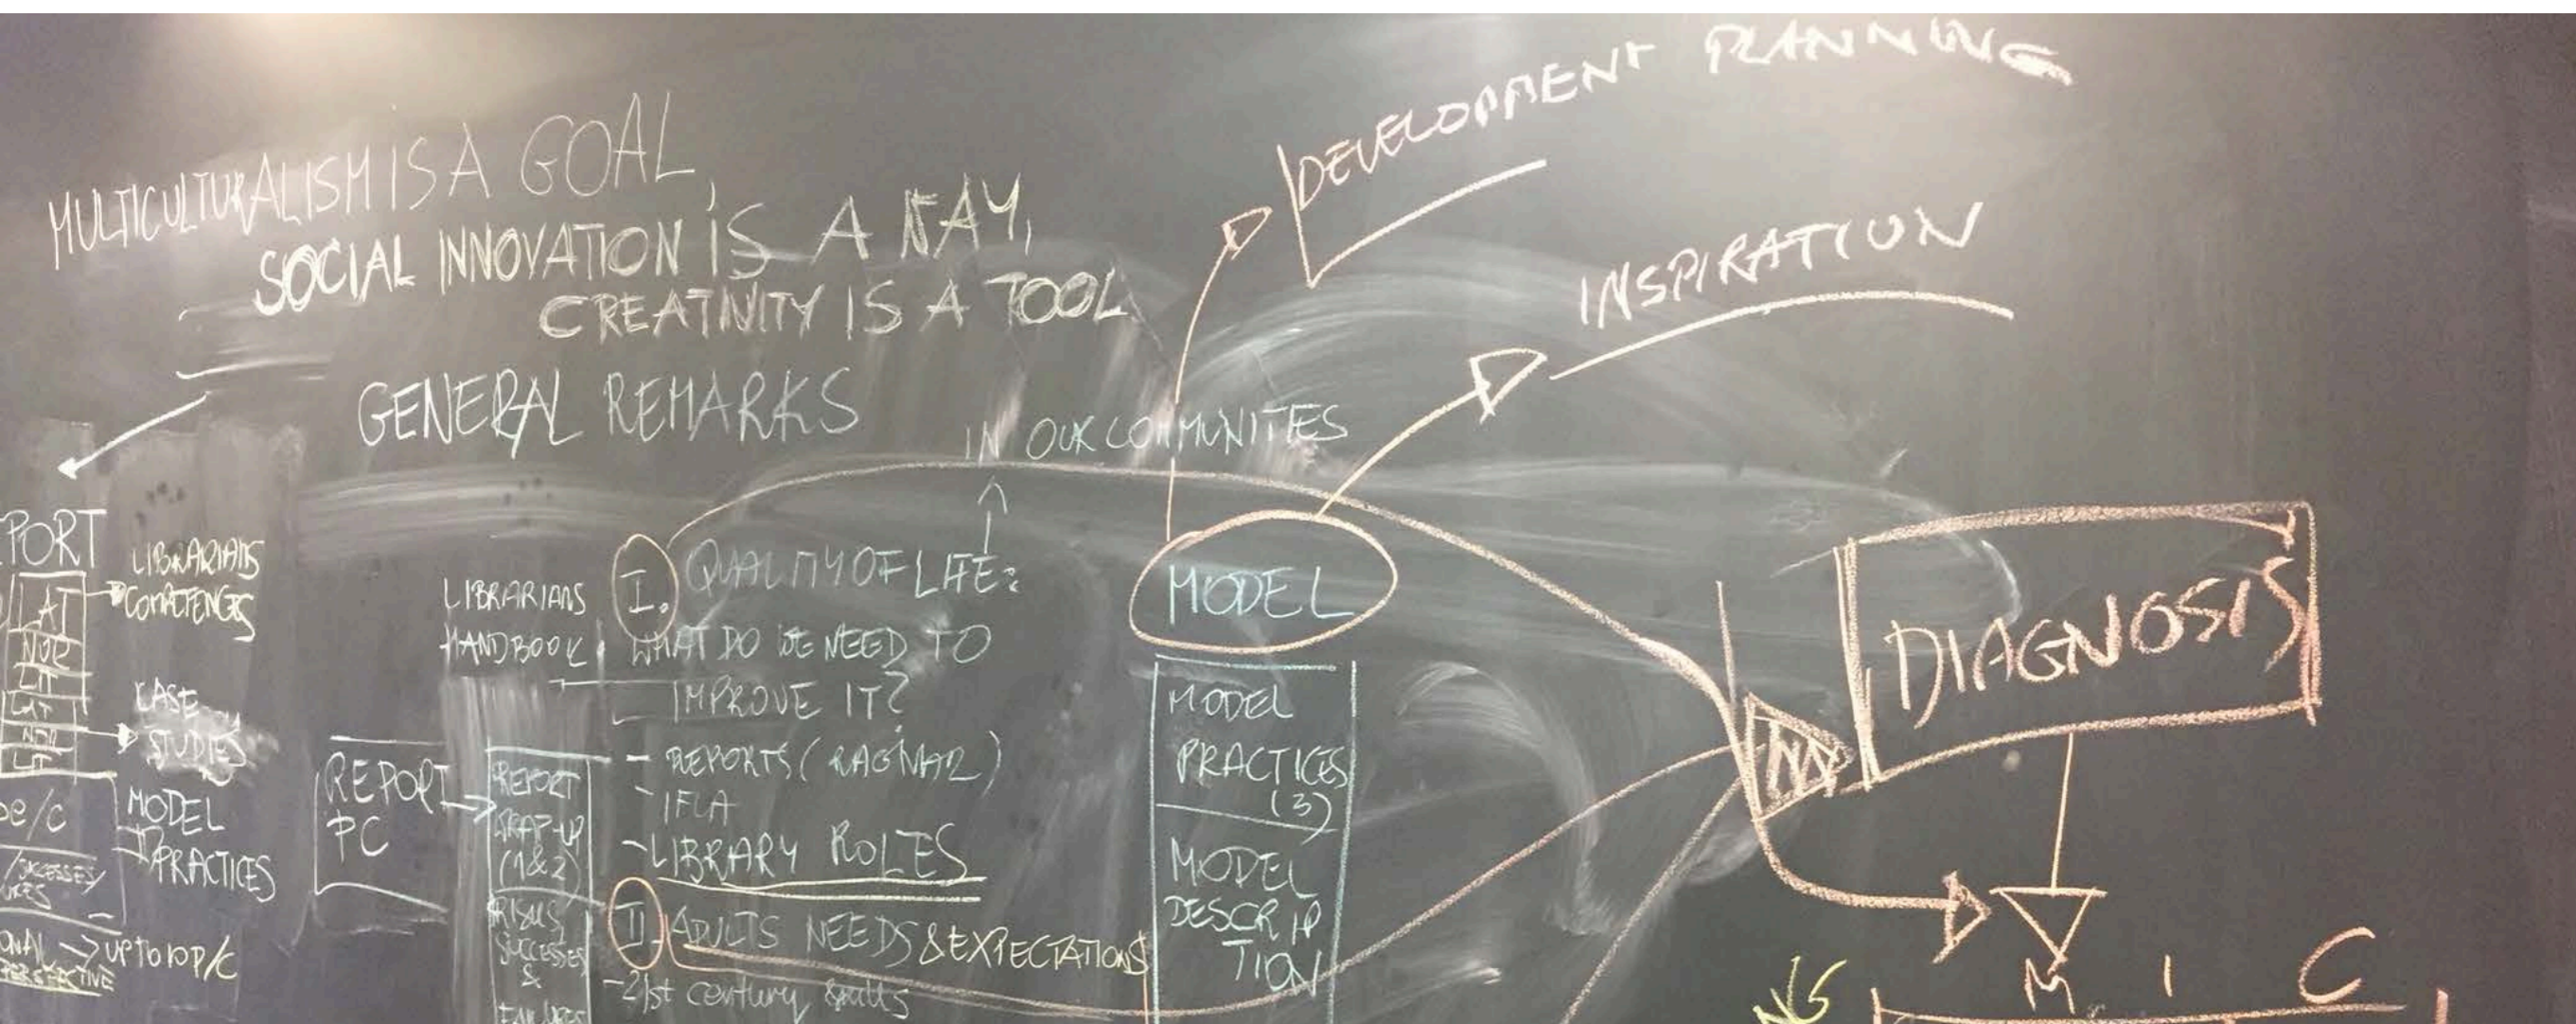 MULTICULTURALISM IS A GOAL,
SOCIAL INNOVATION IS A WAY,
CREATIVITY IS A TOOL
GENERAL REMARKS
DEVELOPMENT PLANNING
INSPIRATION
IN OUR COMMUNITIES
PORT
LAT
NOR
LIT
LAT
NOR
LIT
LIBRARIANS
COMPETENCES
CASE
STUDIES
MODEL
PRACTICES
/SUCCESSES/
URES
ONAL → UP TO 10 P/C
PERSPECTIVE
REPORT
PC
LIBRARIANS
HANDBOOK
REPORT
WRAP-UP
(1&2)
RISKS,
SUCCESSES
&
FAILURES
I. QUALITY OF LIFE:
WHAT DO WE NEED TO
IMPROVE IT?
- REPORTS (RAGNAR)
- IFLA
- LIBRARY ROLES
II. ADULTS NEEDS & EXPECTATIONS
- 21st century skills
MODEL
MODEL
PRACTICES
(3)
MODEL
DESCRIP
TION
DIAGNOSIS
M I C
NGS